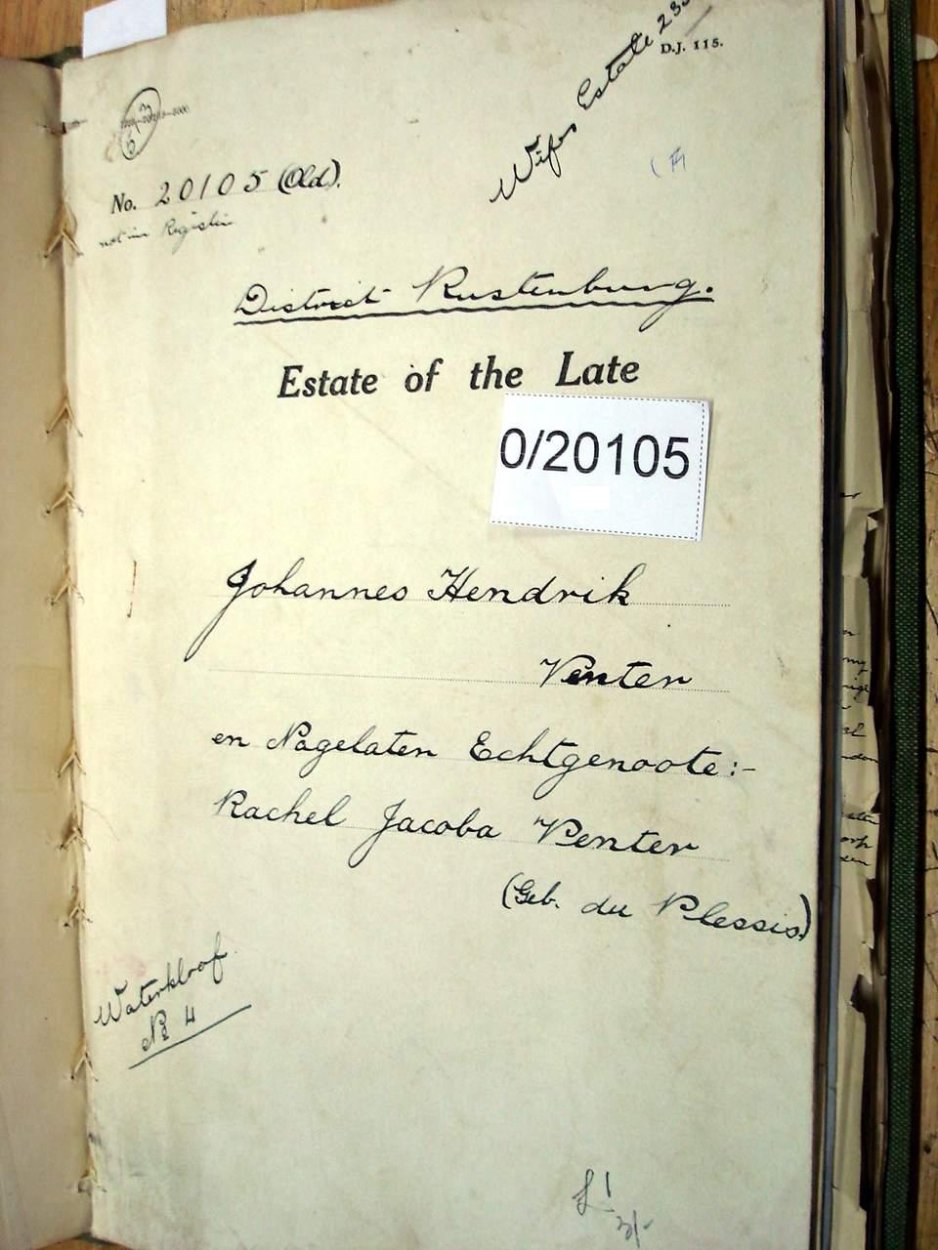 D.J. 115.
Wifes Estate
No. 20105 (Old).
not in Register
District Rustenburg.
Estate of the Late
0/20105
Johannes Hendrik
Venter
en Nagelaten Echtgenoote:-
Rachel Jacoba Venter
(Geb. du Plessis)
Waterkloof
No 4
£1
3/-